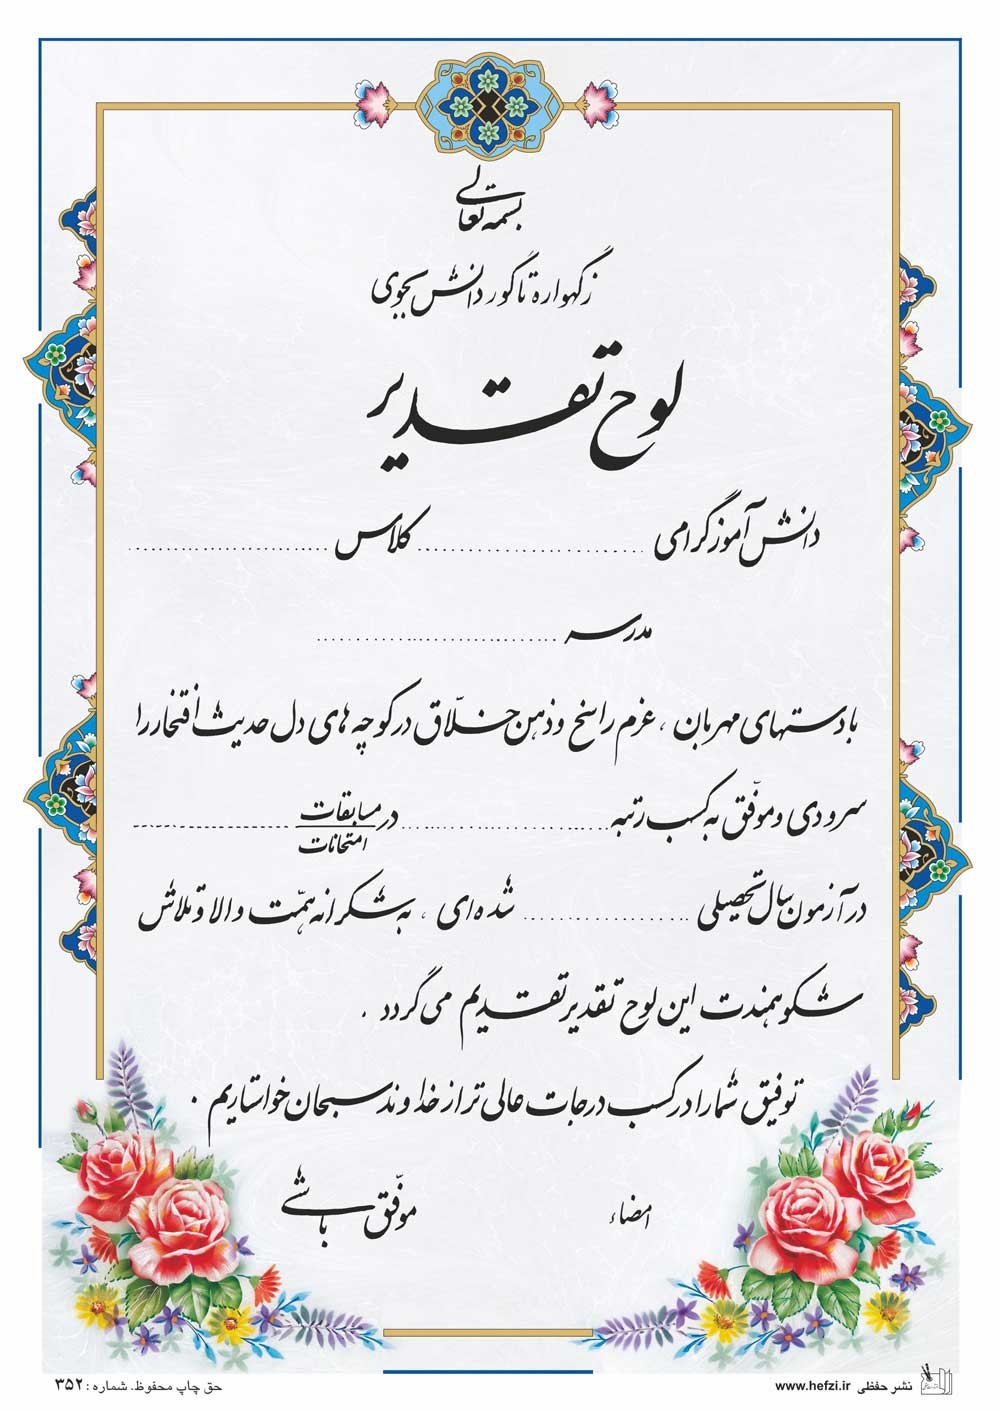 بسمه تعالی
ز گهواره تا گور دانش بجوی
لوح تقدیر
دانش آموز گرامی ........................ کلاس ........................
مدرسه ........................
با دستهای مهربان ، عزم راسخ و ذهن خلّاق در کوچه های دل حدیث افتخار را
سرودی و موفّق به کسب رتبه ........................ در مسابقات ........................
امتحانات
در آزمون سال تحصیلی ........................ شده ای ، به شکرانه همّت والا و تلاش
شکوهمندت این لوح تقدیر تقدیم می گردد .
توفیق شما را در کسب درجات عالی تر از خداوند سبحان خواستاریم .
امضاء
موفّق باشی
نشر حفظی www.hefzi.ir
حق چاپ محفوظ. شماره : ۳۵۲